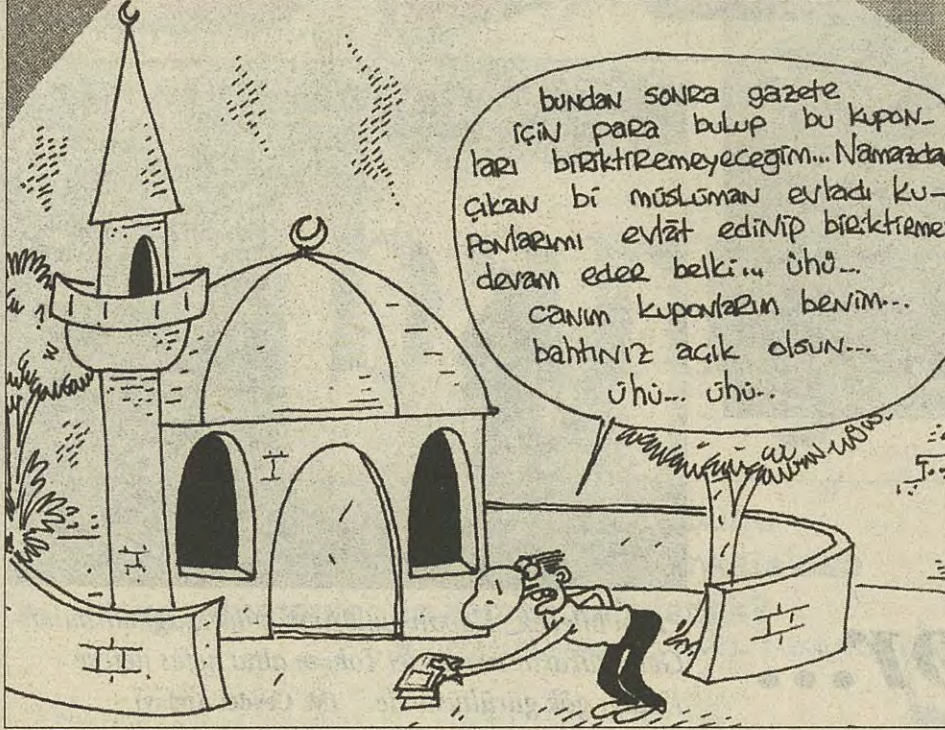 bundan sonra gazete
için para bulup bu kupon-
ları biriktiremeyeceğim... Namazda
çıkan bi müslüman evladı ku-
ponlarımı evlât edinip biriktirme
devam eder belki... ühü...
canım kuponlarım benim...
bahtınız açık olsun...
ühü... ühü..